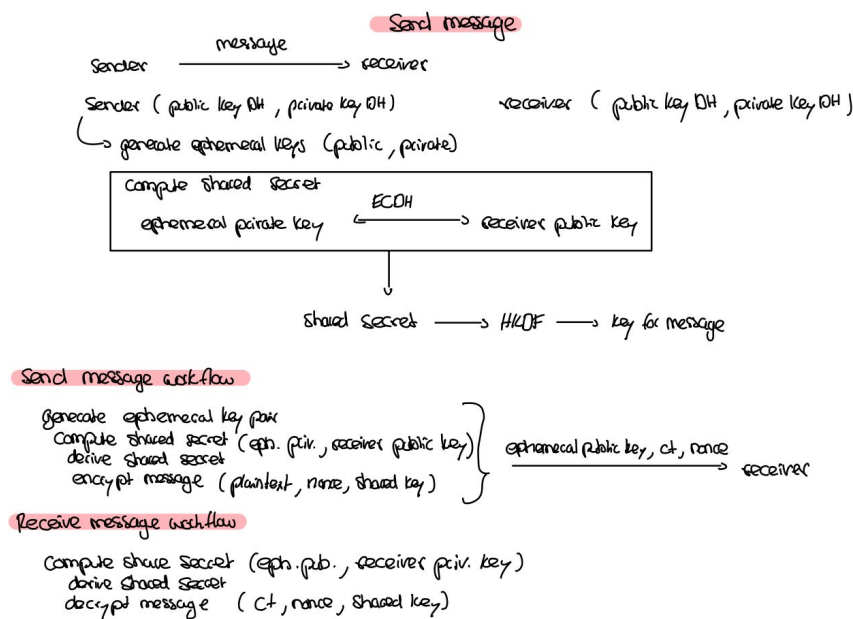 Send message
message
sender receiver
Sender ( public key DH , private key DH ) receiver ( public key DH , private key DH )
generate ephemeral keys (public , private)
compute shared secret
ECDH
ephemeral private key receiver public key
shared secret HKDF key for message
Send message workflow
generate ephemeral key pair
compute shared secret (eph. priv. , receiver public key)
derive shared secret
encrypt message ( plaintext , nonce , shared key )
ephemeral public key, ct, nonce
receiver
Receive message workflow
compute share secret (eph. pub. , receiver priv. key)
derive shared secret
decrypt message ( ct , nonce , shared key )